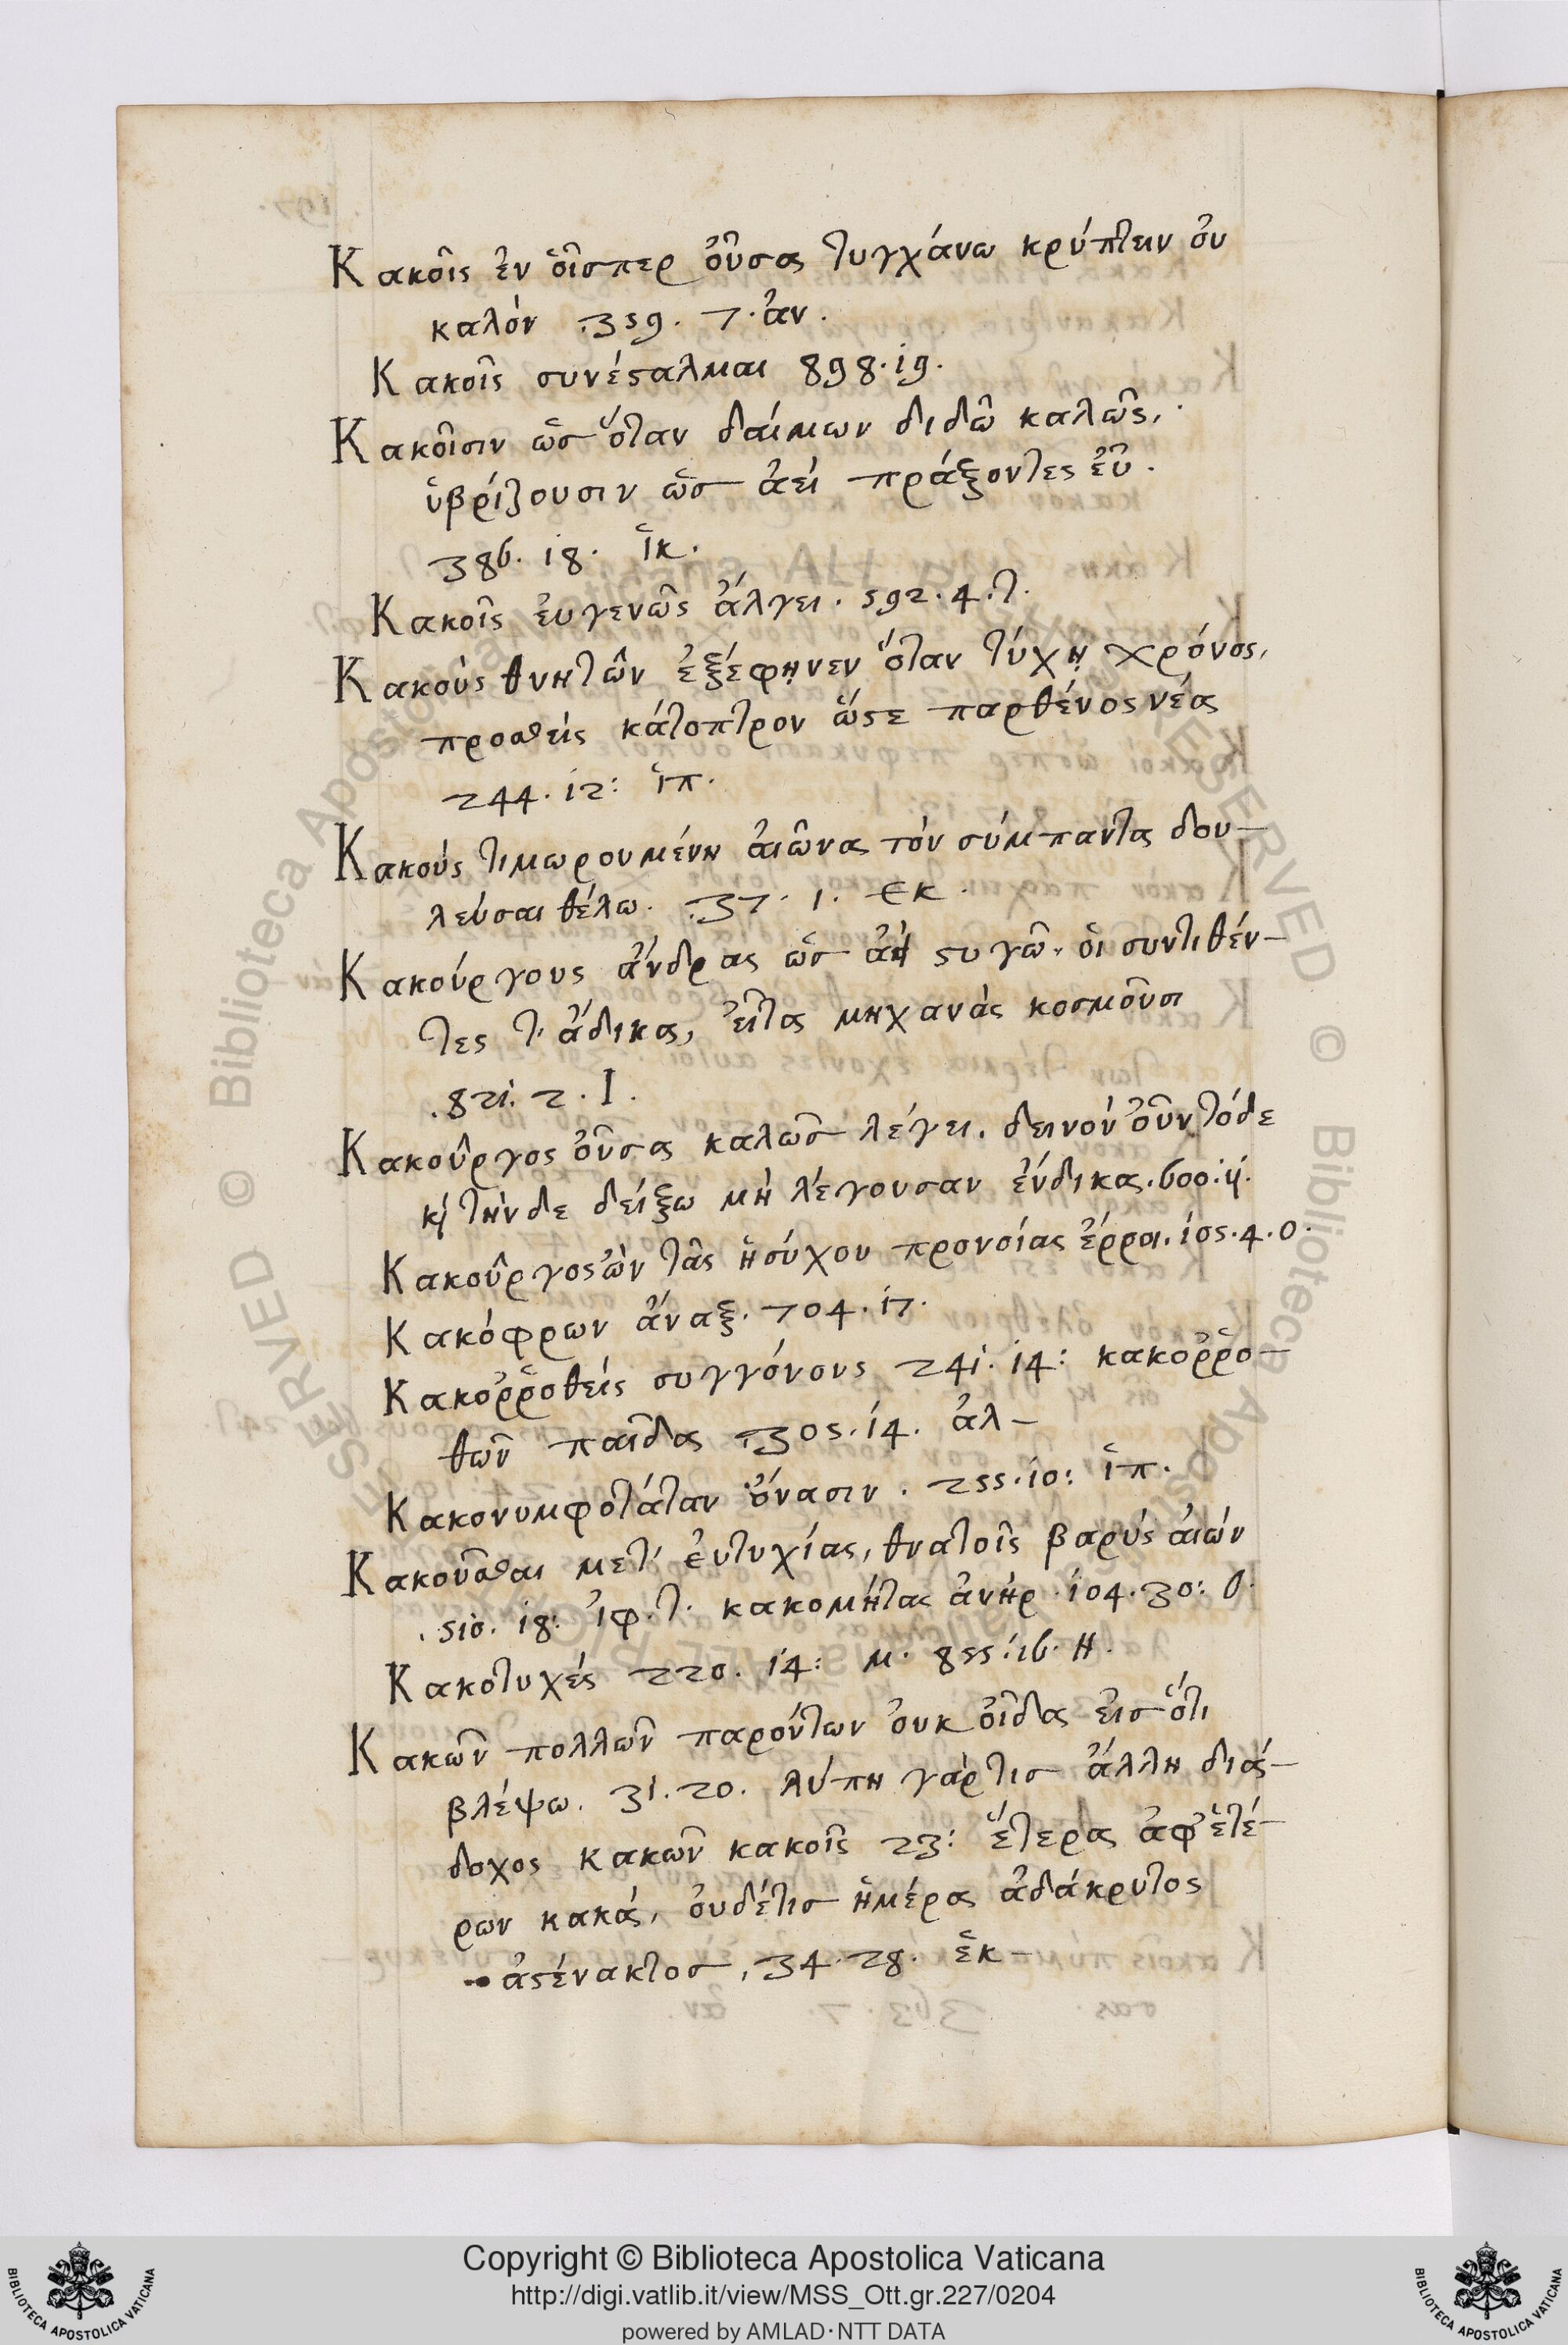 Κακοῖς ἐν οἷσπερ οὖσα τυγχάνω κρύπτειν οὐ
καλόν .359. 7. ἀν.
Κακοῖς συνέσαλμαι 898. 19.
Κακοῖσιν ὡς ὅταν δαίμων διδῶ καλῶς,
ὑβρίζουσιν ὡς ἀεὶ πράξοντες εὖ.
386. 18. ἱκ.
Κακοῖς εὐγενῶς ἄλγει. 592. 4. τ.
Κακοὺς θνητῶν ἐξέφῃνεν ὅταν τύχῃ χρόνος,
προσθεὶς κάτοπτρον ὥστε παρθένος νέα
244. 12: ἱπ.
Κακοὺς τιμωρουμένη αἰῶνα τὸν σύμπαντα δου-
λεῦσαι θέλω. .37. 1. Εκ.
Κακούργους ἄνδρας ὡς ἀεὶ στυγῶ. οἱ συντιθέν-
τες τ' ἄδικα, εἶτα μηχανὰς κοσμοῦσι
.821. 2. Ι.
Κακοῦργος οὖσα καλῶς λέγει. δεινὸν οὖν τόδε
κὶ τήνδε δείξω μὴ λέγουσαν ἔνδικα. 600. 11.
Κακοῦργος ὢν τᾶς ἡσύχου προνοίας ἔρροι. 105. 4. ο.
Κακόφρων ἄναξ. 704. 17.
Κακοῤῥοθεὶς συγγόνους 241. 14: κακοῤῥο-
θῶν παῖδα .305. 14. ἀλ-
Κακονυμφοτάταν ὄνασιν. 255. 10: ἱπ.
Κακοῦσθαι μετ' εὐτυχίας, θνατοῖς βαρὺς αἰών
.510. 18: ἰφ. τ. κακομήτας ἀνὴρ. 104. 30: ο.
Κακοτυχές 220. 14: μ. 855. 16. Η.
Κακῶν πολλῶν παρόντων οὐκ οἶδα εἰς ὅτι
βλέψω. 31. 20. λύπη γάρ τις ἄλλη διά-
δοχος κακῶν κακοῖς 23: ἕτερα ἀφ' ἑτέ-
ρων κακά, οὐδέ τις ἡμέρα ἀδάκρυτος
ἀστένακτος, 34. 28. ἑκ-
Copyright © Biblioteca Apostolica Vaticana
http://digi.vatlib.it/view/MSS_Ott.gr.227/0204
powered by AMLAD·NTT DATA